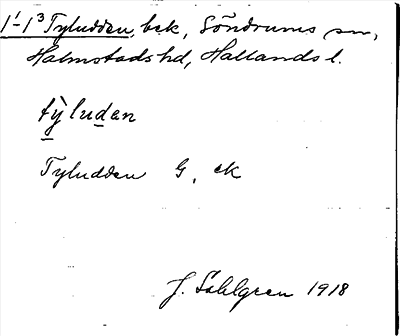 1¹-1³ Tyludden, bek, Söndrums sn,
Halmstads hd, Hallands l.
tỳludan
Tyludden G, ek
J. Sahlgren 1918